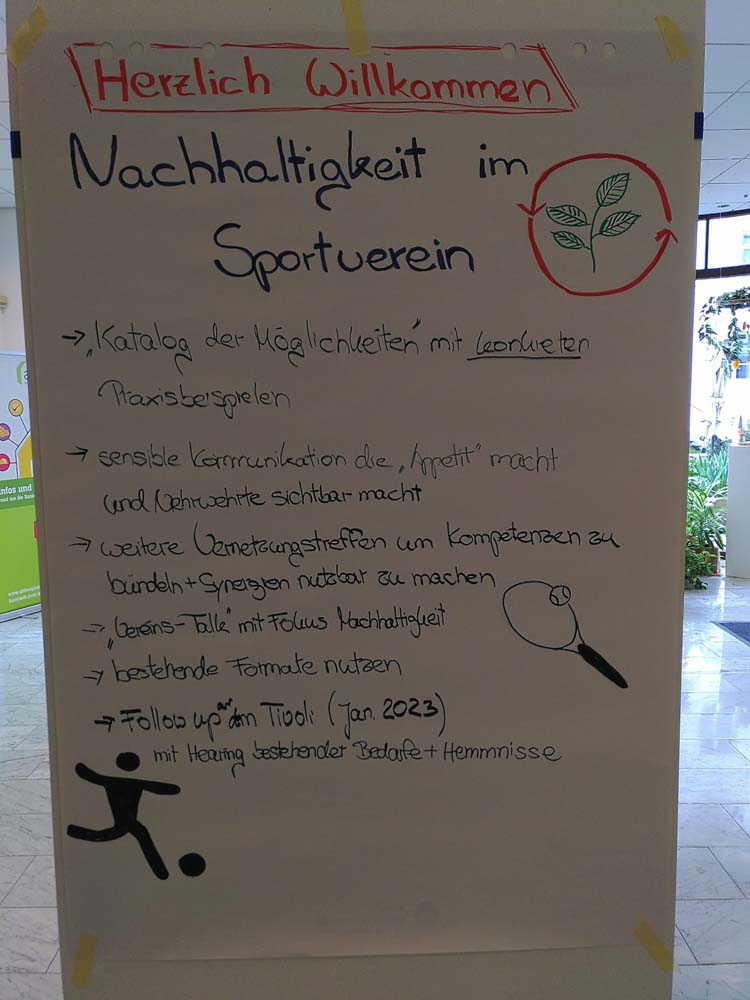 Herzlich Willkommen
Nachhaltigkeit im
Sportverein
→ „Katalog der Möglichkeiten" mit konkreten
Praxisbeispielen
→ sensible Kommunikation die „Appetit" macht
und Mehrwehrte sichtbar macht
→ weitere Vernetzungstreffen um Kompetenzen zu
bündeln + Synergien nutzbar zu machen
→ „Vereins-Talk" mit Fokus Nachhaltigkeit
→ bestehende Formate nutzen
→ Follow up auf dem Tivoli (Jan. 2023)
mit Hearing bestehender Bedarfe + Hemmnisse
nfos und